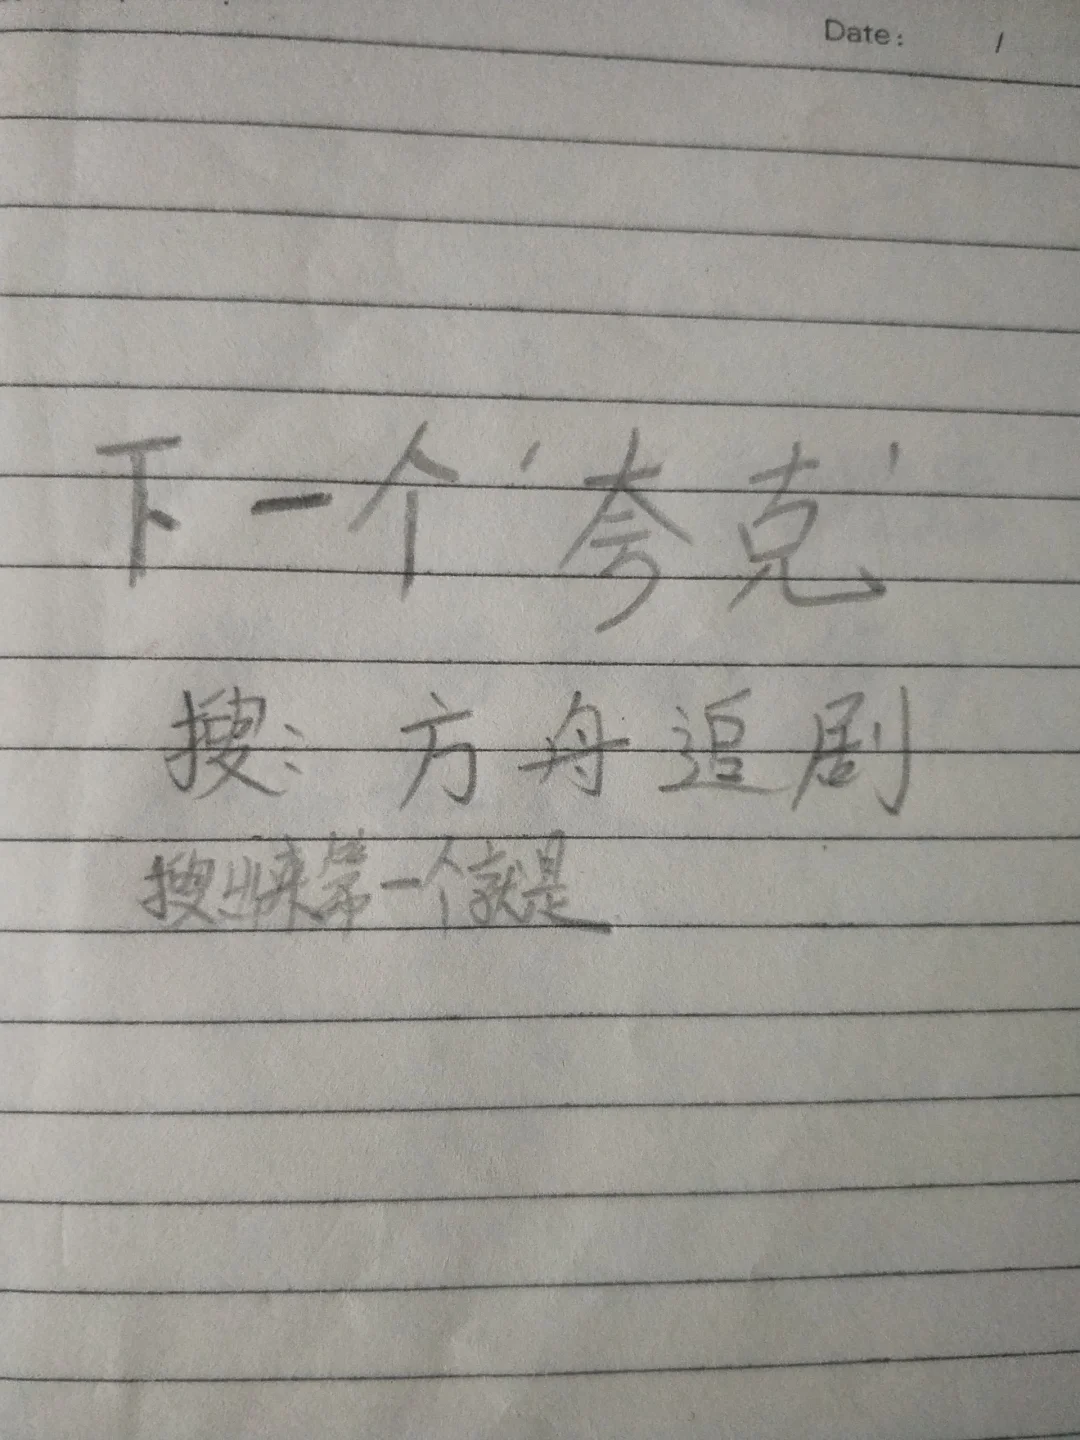 Date: /
下一个'夸克'
搜: 方舟追剧
搜出来第一个就是